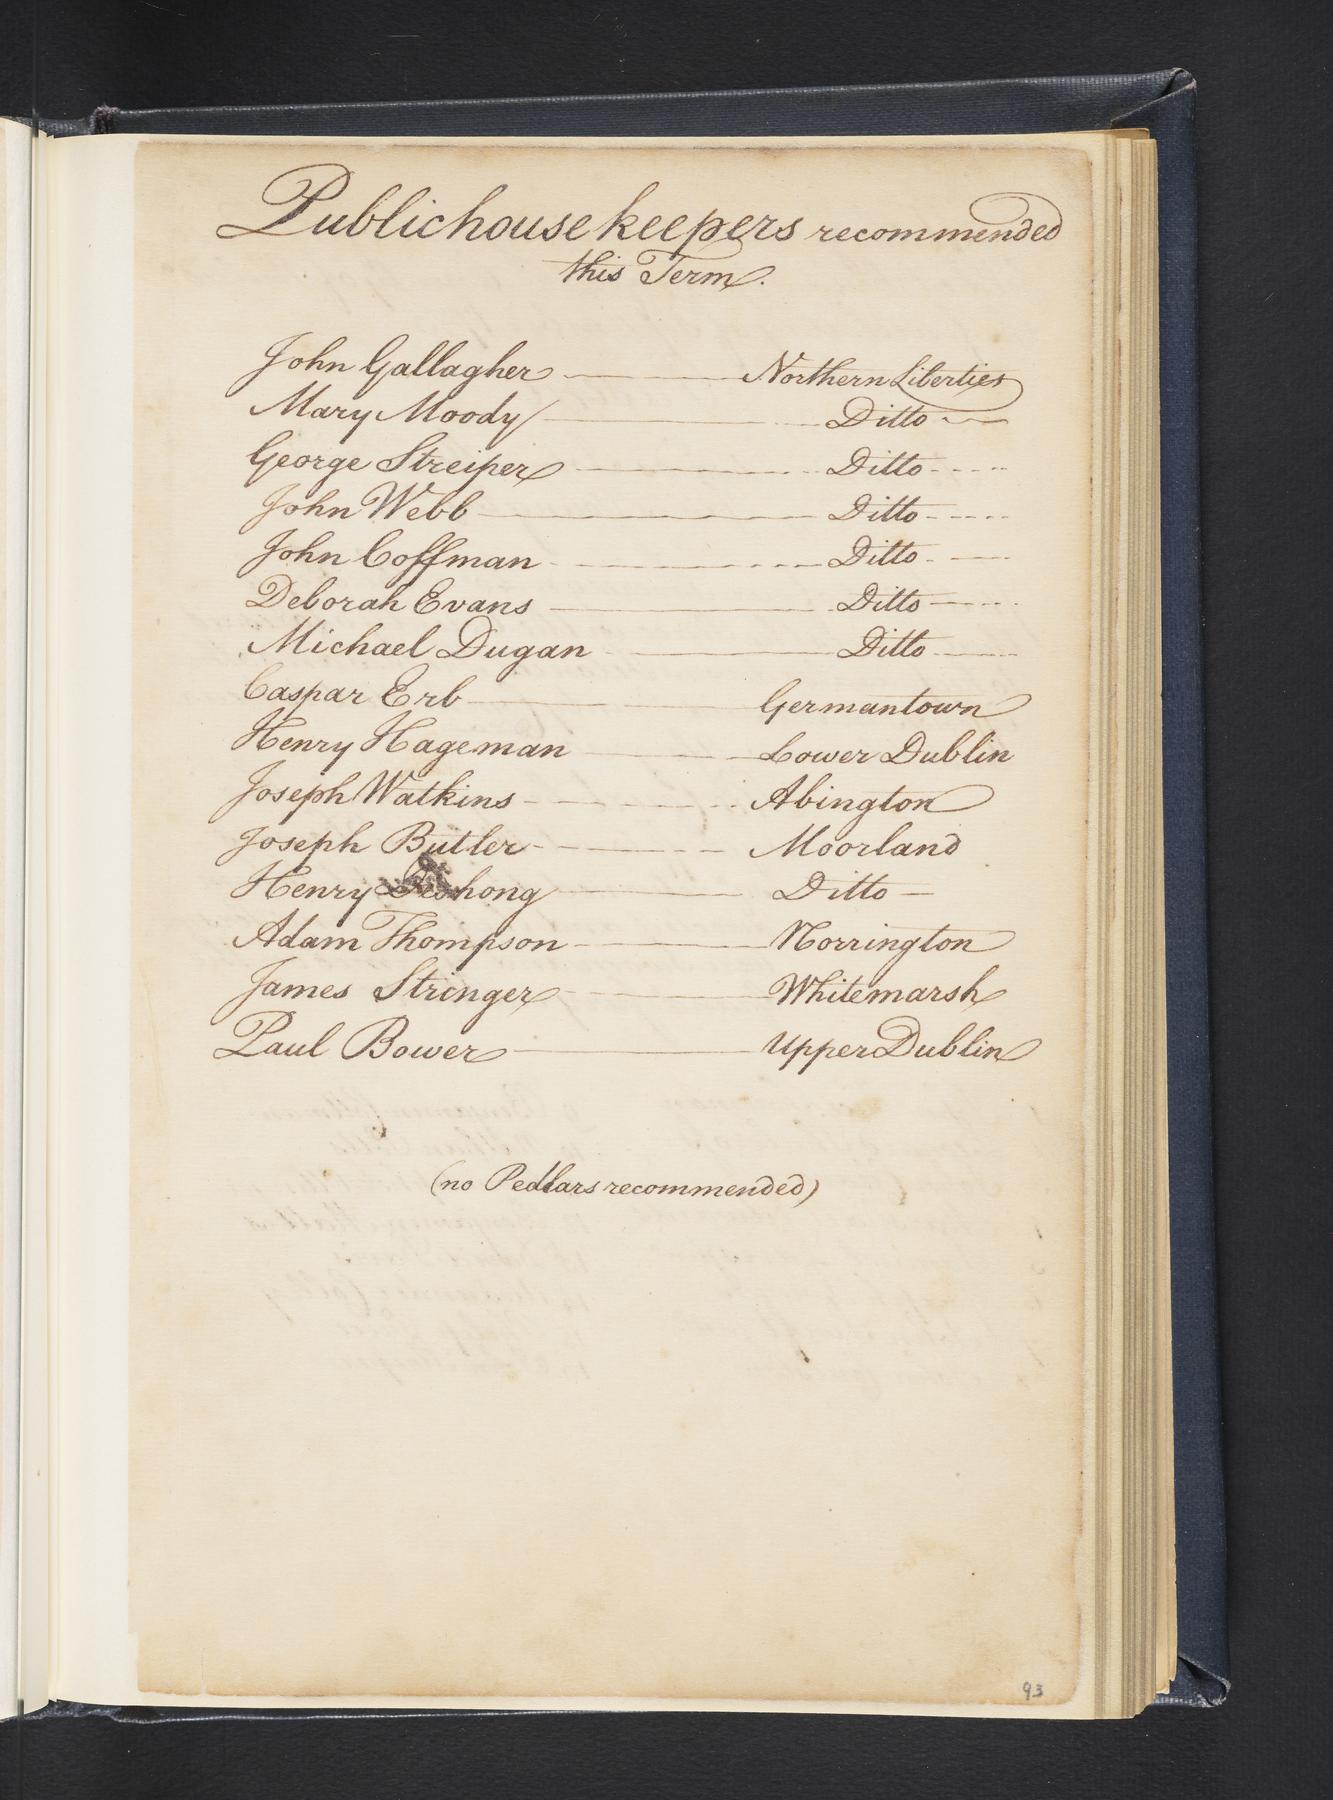 Publichousekeepers recommended
this Term.
John Gallagher Northern Liberties
Mary Moody Ditto
George Streiper Ditto
John Webb Ditto
John Coffman Ditto
Deborah Evans Ditto
Michael Dugan Ditto
Caspar Erb Germantown
Henry Hageman Lower Dublin
Joseph Watkins Abington
Joseph Butler Moorland
Henry Ditto
Adam Thompson Norrington
James Stringer Whitemarsh
Paul Bower Upper Dublin
(no Pedlars recommended)
93